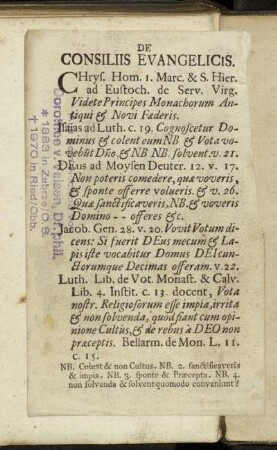 DE
CONSILIIS EVANGELICIS.
CHrys. Hom. 1. Marc. & S. Hier.
ad Eustoch. de Serv. Virg.
Videte Principes Monachorum An-
tiqui & Novi Fœderis.
Isaias ad Luth. c. 19. Cognoscetur Do-
minus & colent eum NB & Vota vo-
vebũt Dño, & NB NB. solvent. v. 21.
DEus ad Moysen Deuter. 12. v. 17.
Non poteris comedere, quæ voveris,
& sponte offerre volueris. & v. 26.
Quæ sanctificaveris, NB. & voveris
Domino - - offeres &c.
Jacob. Gen. 28. v. 20. Vovit Votum di-
cens: Si fuerit DEus mecum & La-
pis iste vocabitur Domus DEI cun-
ctorumque Decimas offeram. v. 22.
Luth. Lib. de Vot. Monast. & Calv.
Lib. 4. Instit. c. 13. docent, Vota
nostr. Religiosorum esse impia, irrita
& non solvenda, quòd fiant cum opi-
nione Cultûs, & de rebus à DEO non
præceptis. Bellarm. de Mon. L. 11.
c. 15.
NB. Colent & non Cultus. NB. 2. sanctificaveris
& impia. NB. 3. sponte & Præcepta. NB. 4.
non solvenda & solvent quomodo conveniunt?
Dr. phil.
* 1883 in Zabrze/O.S.
† 1970 in Ried/Obb.